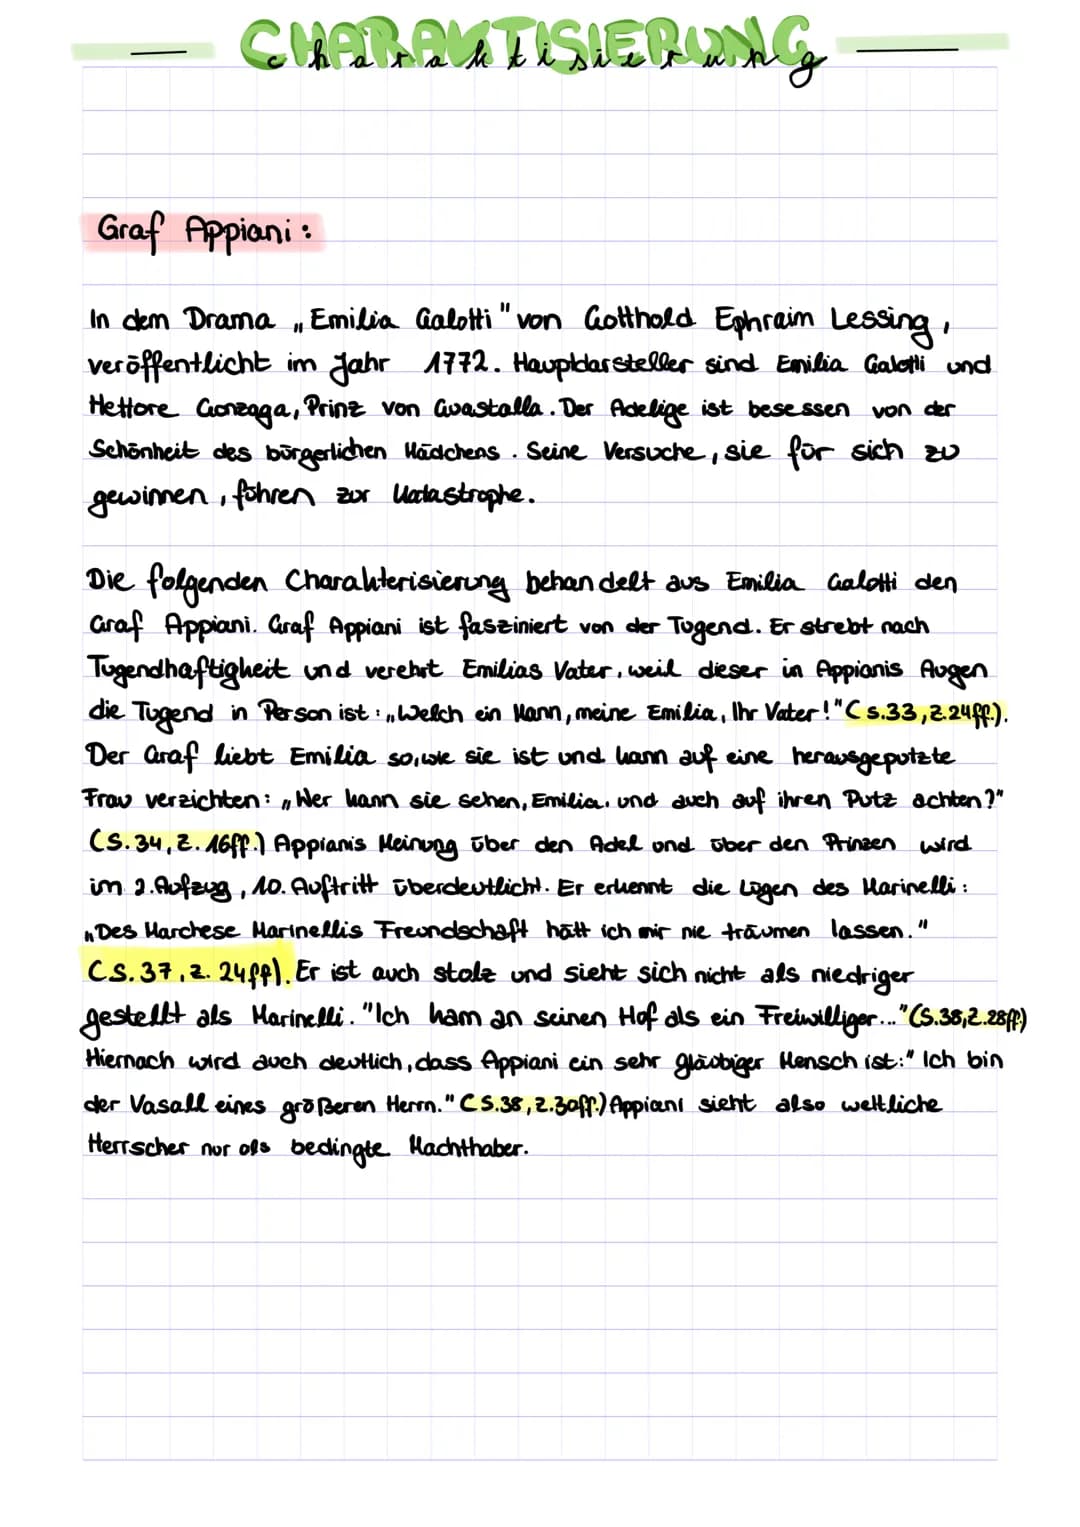 CHARAKTISIERUNG
charaktisierung
Graf Appiani:
In dem Drama „Emilia Galotti" von Gotthold Ephraim Lessing,
veröffentlicht im Jahr 1772. Hauptdarsteller sind Emilia Galotti und
Hettore Gonzaga, Prinz von Guastalla. Der Adelige ist besessen von der
Schönheit des bürgerlichen Mädchens. Seine Versuche, sie für sich zu
gewinnen, führen zur Katastrophe.
Die folgenden Charakterisierung behandelt aus Emilia Galotti den
Graf Appiani. Graf Appiani ist fasziniert von der Tugend. Er strebt nach
Tugendhaftigkeit und verehrt Emilias Vater, weil dieser in Appianis Augen
die Tugend in Person ist: „Welch ein Mann, meine Emilia, Ihr Vater!" (S.33, Z.24ff.).
Der Graf liebt Emilia so, wie sie ist und kann auf eine herausgeputzte
Frau verzichten: „Wer kann sie sehen, Emilia, und auch auf ihren Putz achten?"
(S.34, Z. 16ff.) Appianis Meinung über den Adel und über den Prinzen wird
im 2. Aufzug, 10. Auftritt überdeutlicht. Er erkennt die Lügen des Marinelli:
„Des Marchese Marinellis Freundschaft hätt ich mir nie träumen lassen."
(S.37, Z. 24ff). Er ist auch stolz und sieht sich nicht als niedriger
gestellt als Marinelli. "Ich kam an seinen Hof als ein Freiwilliger..." (S.38, Z.28ff.)
Hiernach wird auch deutlich, dass Appiani ein sehr gläubiger Mensch ist:" Ich bin
der Vasall eines größeren Herrn." (S.38, Z.30ff.) Appiani sieht also weltliche
Herrscher nur als bedingte Machthaber.